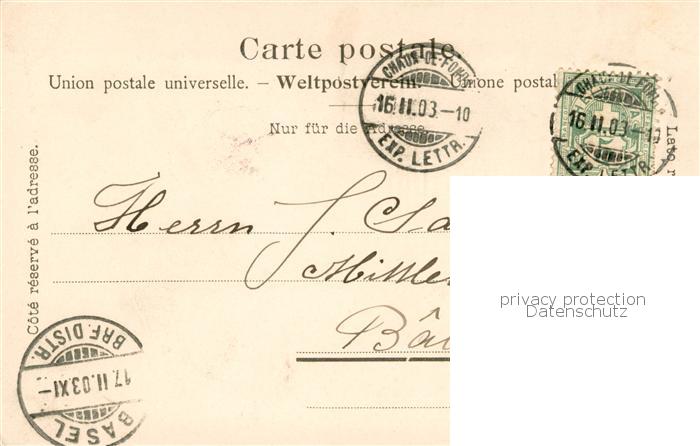 Carte postale.
Union postale universelle. – Weltpostverein. – Unione postal
Nur für die Adresse.
Côté réservé à l'adresse.
Lato r
CHAUX-DE-FONDS
16.II.03.–10
EXP. LETTR.
CHAUX-DE-FON
16.II.03.–10
EXP. LETTR.
Herrn J. Sa
Mittle
Bâ
BRF. DISTR.
17.II.03.XI–
BASEL
privacy protection
Datenschutz